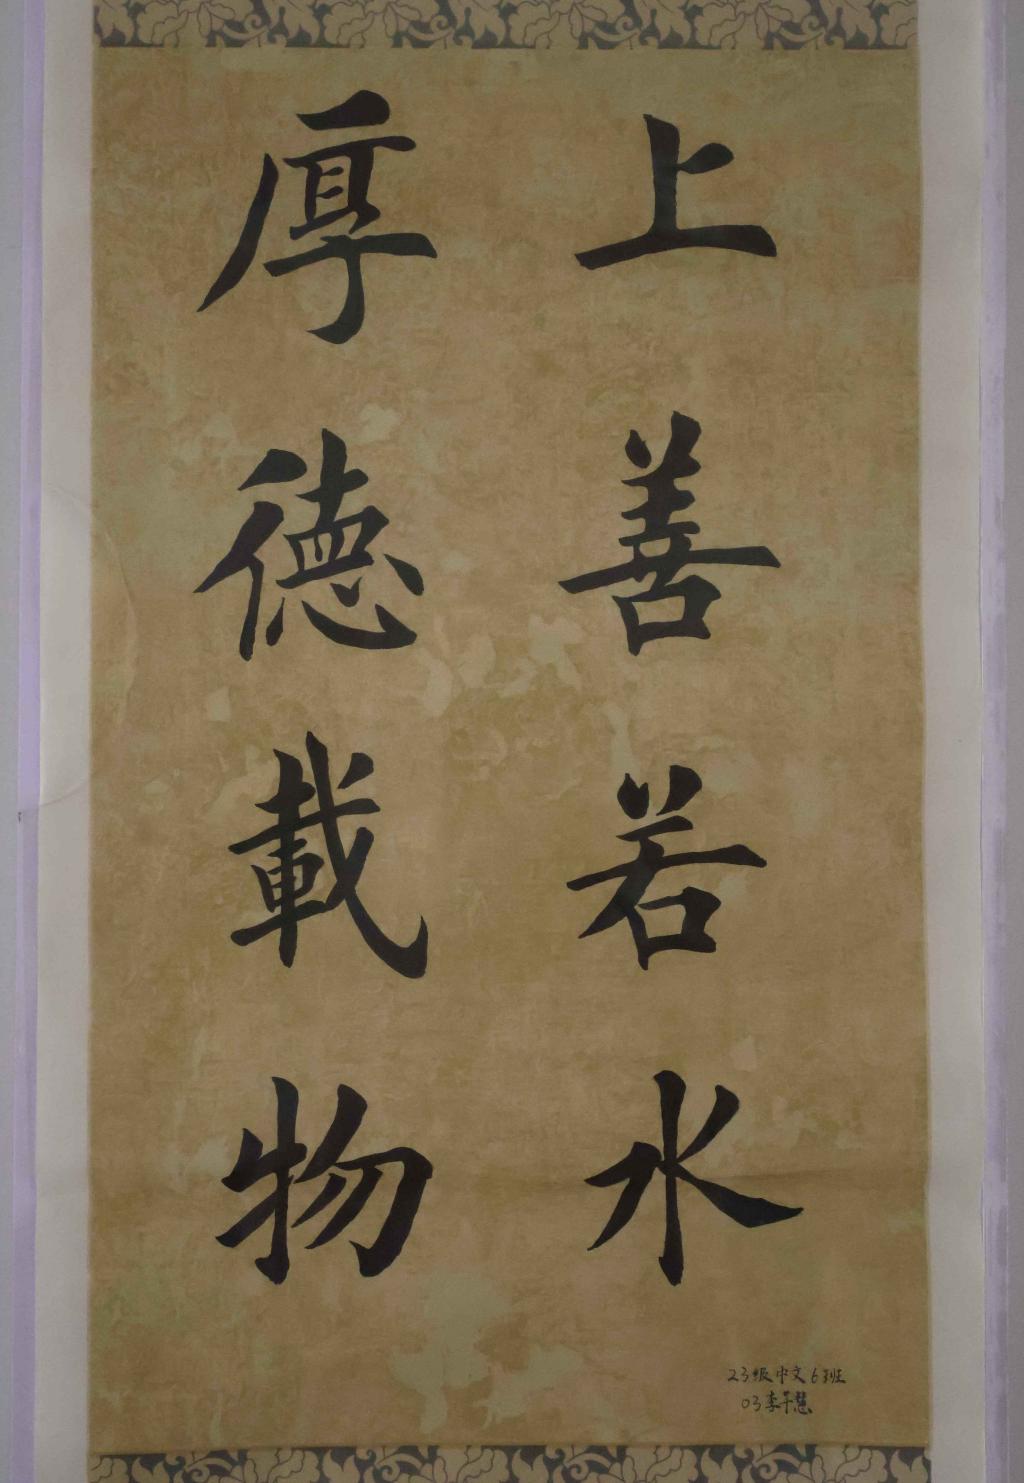 上善若水
厚德載物
23级中文6班
03李千慧